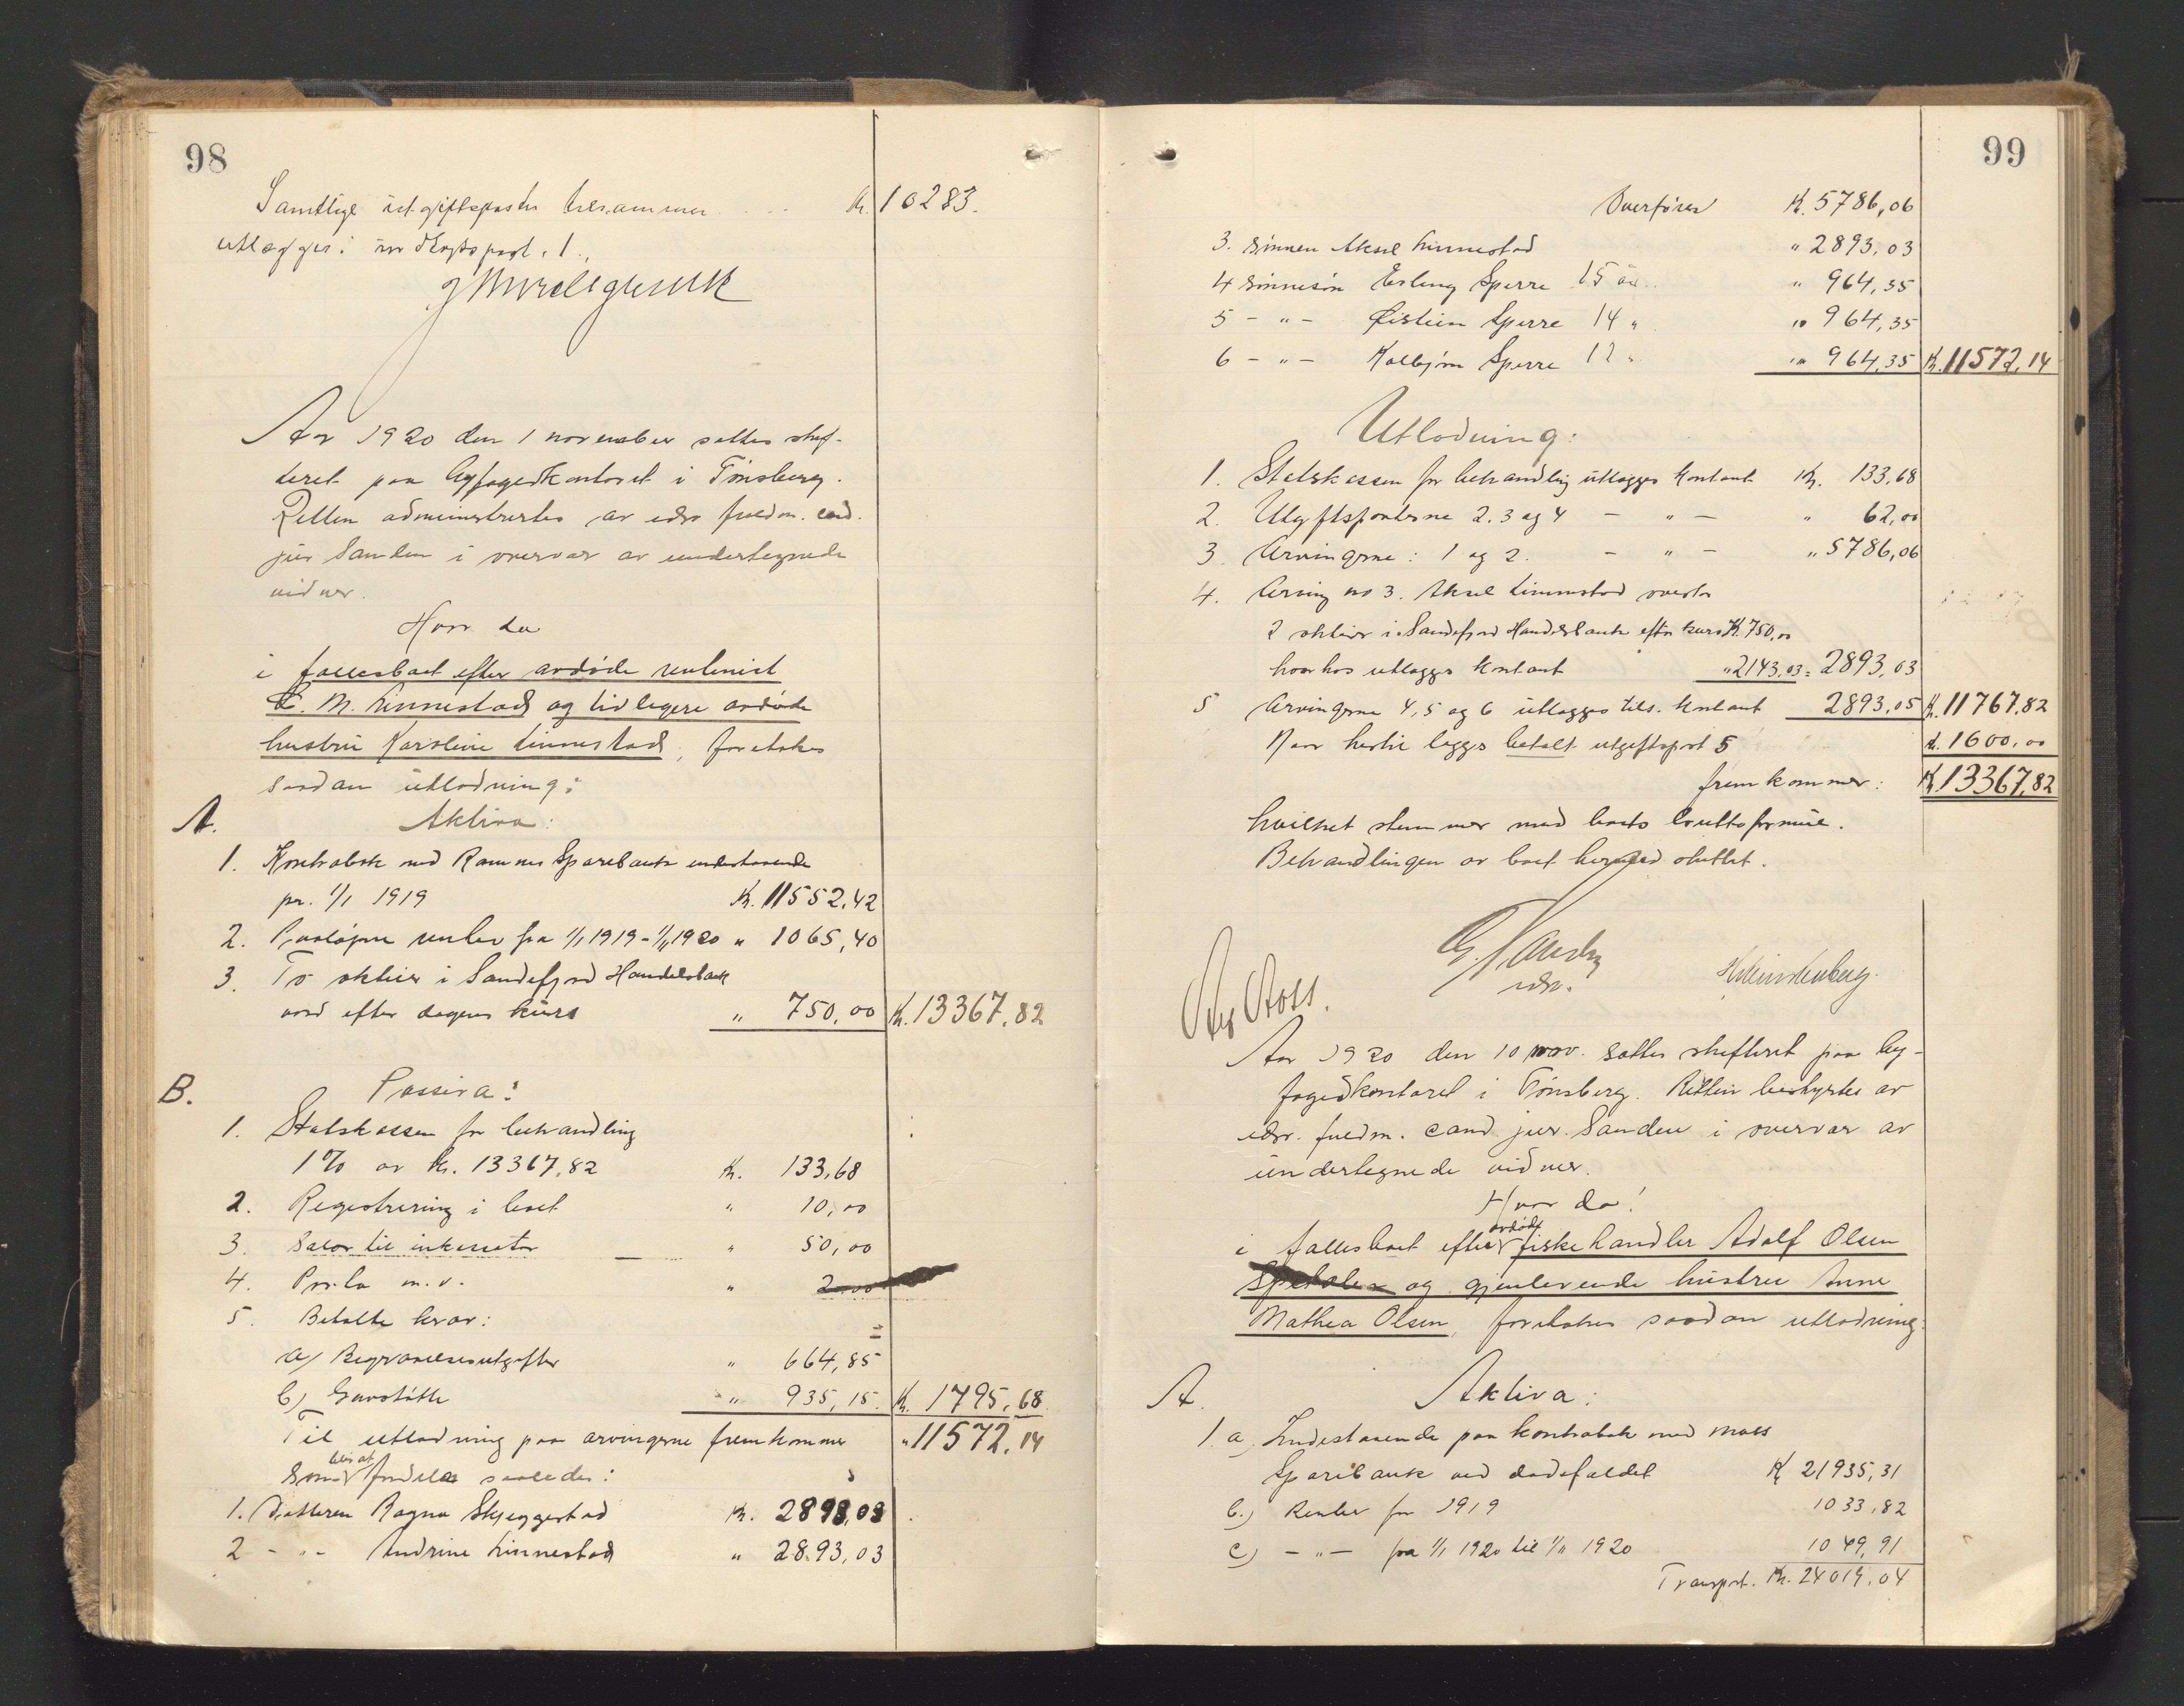 98
Samtlige utgiftsposter tilsammen . . . . Kr. 10283.
utlægges i indtægtspost. 1.
Aar 1920 den 1 november sattes skif-
teret paa byfogedkontoret i Tønsberg.
Retten administrertes av edsv. fuldm. cand.
jur Sanden i overvær av undertegnede
vidner.
Hvor da
i fællesboet efter avdøde rentenist
L. M. Linnestad og tidligere avdøde
hustru Karoline Linnestad, foretokes
saadan utlodning:
A. Aktiva:
1. Kontrabok med Ramnes Sparebank indestaaende
pr. 1/1 1919 Kr. 11552,42
2. Paaløpne renter fra 1/1 1919 - 1/11 1920 " 1065,40
3. To aktier i Sandefjord Handelsbank
værd efter dagens kurs " 750,00 Kr. 13367,82
B. Passiva:
1. Statskassen for behandling
1% av kr. 13367,82 Kr. 133,68
2. Registrering i boet " 10,00
3. Salær til inkassator " 50,00
4. Porto m.v. " 2.00
5. Betalte krav:
a) Begravelsesutgifter " 664,85
b) Gravstøtte " 935,15. Kr. 1795,68
Til utlodning paa arvingerne fremkommer " 11572,14
som blir at fordele saaledes:
1. Datteren Ragna Skjeggestad Kr. 2893,03
2 - " - Andrine Linnestad " 2893,03
99
Overføres K. 5786,06
3. sønnen Aksel Linnestad " 2893,03
4 sønnesøn Erling Sperre 15 aar " 964,35
5 - " - Øistein Sperre 14 " " 964,35
6 - " - Kolbjørn Sperre 12 " " 964,35 Kr. 11572,14
Utlodning:
1. Statskassen for behandling utlægges kontant Kr. 133,68
2. Utgiftsposterne 2. 3 og 4 - " - " 62,00
3. Arvingerne: 1 og 2. - " - " 5786,06
4. Arving no 3. Aksel Linnestad overtar
2 aktier i Sandefjord Handelsbank efter kurs Kr. 750,00
hvorhos utlægges kontant " 2143,03 = 2893,03
5 Arvingerne 4, 5 og 6 utlægges tils. kontant 2893,05 Kr. 11767,82
Naar hertil lægges betalt utgiftspost 5 K. 1600,00
fremkommer: Kr. 13367,82
hvilket stemmer med boets bruttoformue.
Behandlingen av boet hermed sluttet.
Sanden
edsv.
Aar 1920 den 10 nov. sattes skifteret paa by-
fogedkontoret i Tønsberg. Retten bestyrtes av
edsv. fuldm. cand jur. Sanden i overvær av
undertegnede vidner.
Hvor da!
i fællesboet efter avdøde fiskehandler Adolf Olsen
og gjenlevende hustru Anne
Mathea Olsen, foretokes saadan utlodning:
A. Aktiva:
1. a, Indestaaende paa kontrabok med Moss
Sparebank ved dødsfaldet Kr 21935,31
b.) Renter for 1919 1033,82
c) - " - fra 1/1 1920 til 1/11 1920 1049,91
Transport. Kr. 24019,04